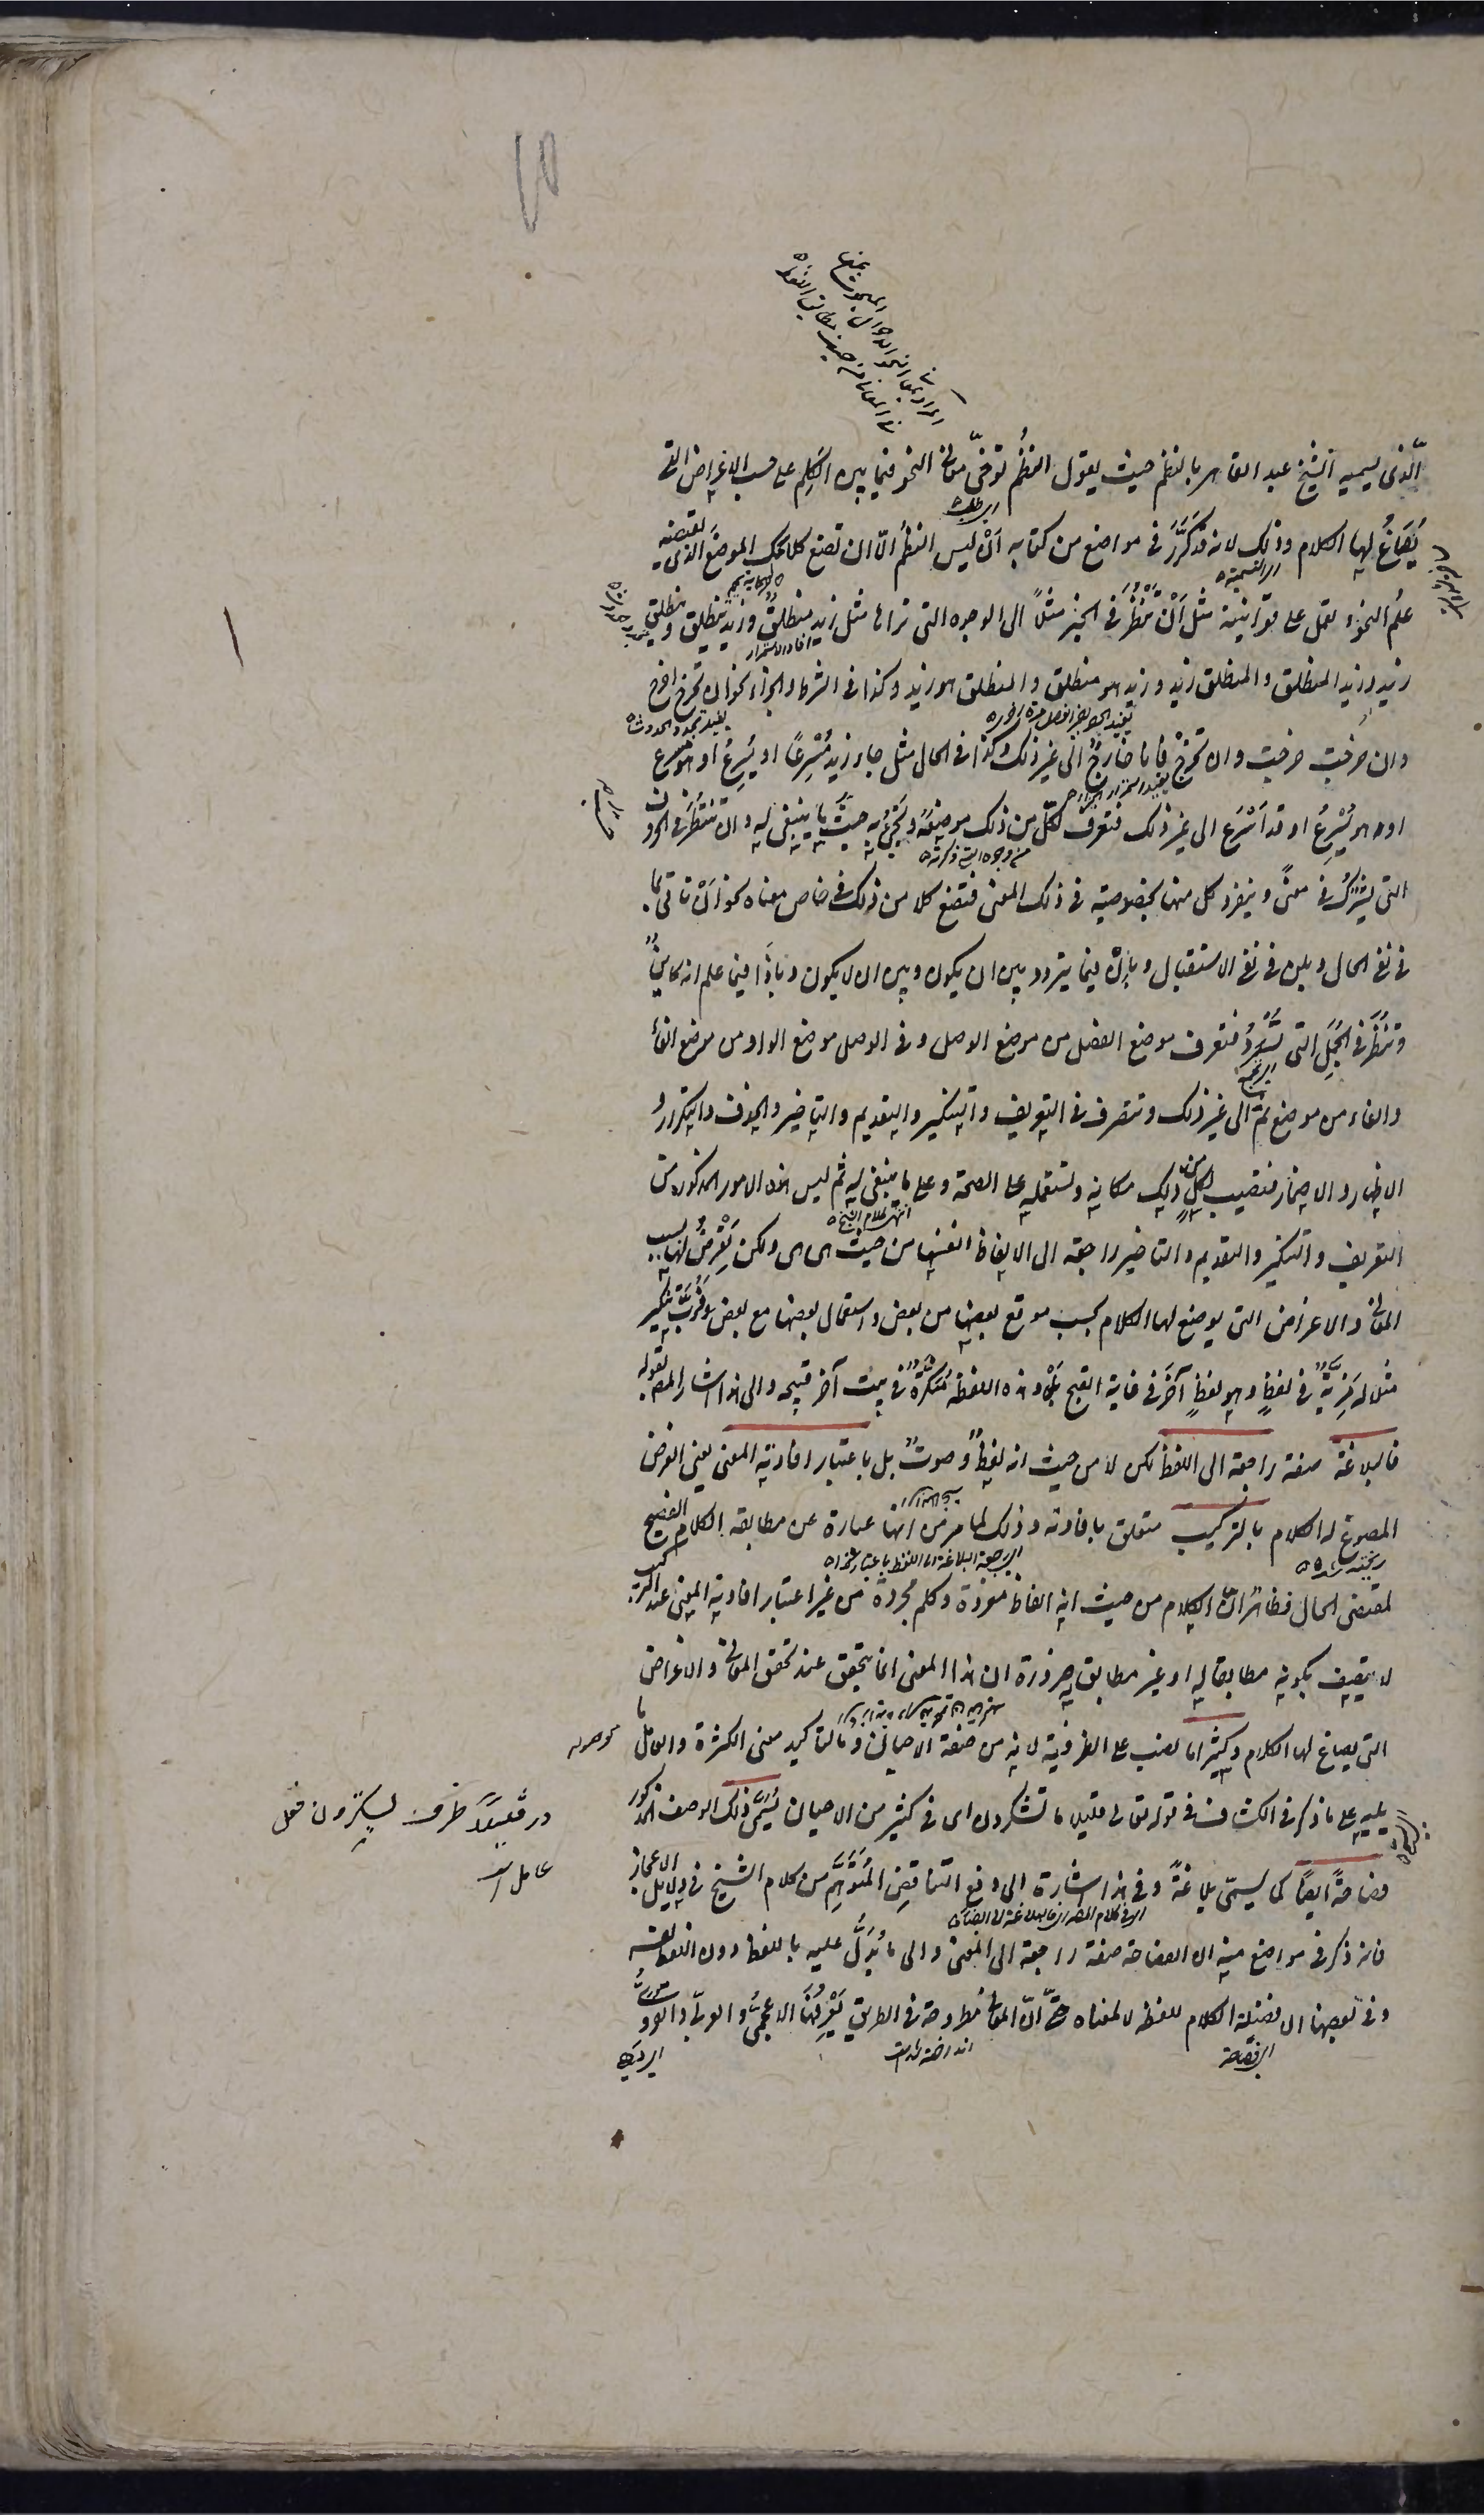 الّذى يسميه الشيخ عبد القاهر بالنظم حيث يقول النظمُ توخّى معانى النحو فيما بين الكَلِم على حسب الاغراض التى
يُصَاغُ لها الكلام وذلك لانه قد كَرَّرَ فى مواضع من كتابه اَنْ ليس النظمُ الّا ان تضع كلامك الموضعَ الذى يقتضيه
علمُ النحو وتعمل على قوانينه مثل اَنْ تَنْظُرَ فى الخبر مثلاً الى الوجوه التى تراها مثل زيد منطلقٌ وزيد ينطلق وينطلق
زيد وزيد المنطلق والمنطلق زيد وزيد هو منطلق والمنطلق هو زيد وكذا فى الشرط والجزاء نحو ان تخرج اخرج
وان خرجتَ خرجت وان تخرجْ فانا خارجٌ الى غير ذلك وكذا فى الحال مثل جاء زيد مُسْرِعًا او يُسْرِعُ او هو مسرع
او هو يُسْرِعُ او قد اَسْرَعَ الى غير ذلك فتعرف لكل من ذلك موضعَه وتجىء به حيث ينبغى له وان تنظر فى الحروف
التى يشترك فى معنًى وينفرد كل منها بخصوصية فى ذلك المعنى فتضع كلا من ذلك فى خاص معناه نحو اَنْ تاتى بما
فى نفى الحال وبلن فى نفى الاستقبال وبإنْ فيما يتردد بين ان يكون وبين ان لا يكون وباذا فيما علم انه كاينٌ
وتنظرَ فى الجُمَلِ التى تُسْرَدُ فتعرف موضع الفصل من موضع الوصل وفى الوصل موضع الواو من موضع الفاء
والفاء من موضع ثمّ الى غير ذلك وتتصرف فى التعريف والتنكير والتقديم والتاخير والحذف والتكرار و
الاظهار والاضمار فتصيب لكل من ذلك مكانه وتستعمله على الصحة وعلى ما ينبغى له ثم ليس هذه الامور المذكورة من
التعريف والتنكير والتقديم والتاخير راجعة الى الالفاظ انفسها من حيث هى هى ولكن تَعْرِضُ لها بسبب
المعانى والاغراض التى يوضع لها الكلام بحسب موقع بعضها من بعض واستعمال بعضها مع بعض فرُبَّ تنكير
مثلا له مَزِيَّةٌ فى لفظٍ وهو لفظٍ آخَرَ فى غاية القبح بَلْ وهذه اللفظة مُنَكَّرَةٌ فى بيت آخر قبيحة والى هذا اشار المص بقوله
فالبلاغة صفة راجعة الى اللفظ لكن لا من حيث انه لفظٌ وصوتٌ بل باعتبار افادته المعنى يعنى الغرض
المصوغ له الكلام بالتركيب متعلق بافادته وذلك لما مر من انها عبارة عن مطابقة الكلام الفصيح
لمقتضى الحال فظاهر انّ الكلام من حيث انه الفاظ مفردة وكلم مجردة من غير اعتبار افادته المعنى عند التركيب
لا يتصف بكونه مطابقا له او غير مطابق له ضرورة ان هذا المعنى انما يتحقق عند تحقق المعانى والاغراض
التى يصاغ لها الكلام وكثيراما نصب على الظرفية لانه من صفة الاحيان وما لتاكيد معنى الكثرة والعامل ما
يليه على ما ذكر فى الكشاف فى قوله تعالى قليلا ما تشكرون اى فى كثير من الاحيان يُسَمَّى ذلك الوصف المذكور
فصاحةً ايضًا كما يسمّى بلاغةً وفى هذا اشارة الى دفع التناقضِ المُتَوَهَّمِ من كلام الشيخ فى دلايل الاعجاز
فانه ذكر فى مواضع منه ان الفصاحة صفة راجعة الى المعنى والى ما يُدَلُّ عليه باللفظ دون اللفظ نفسه
وفى بعضها ان فضيلة الكلام للفظه لا لمعناه حتّى انّ المعانى مطروحة فى الطريق يَعْرِفُهَا الاعجمىّ والعربىّ والقروىّ
موصوله
در قليلاً ظرف تشكرون فعل
عامل است
انتهى كلام الشيخ
من وجوه التى ذكرته
اى الفصاحة